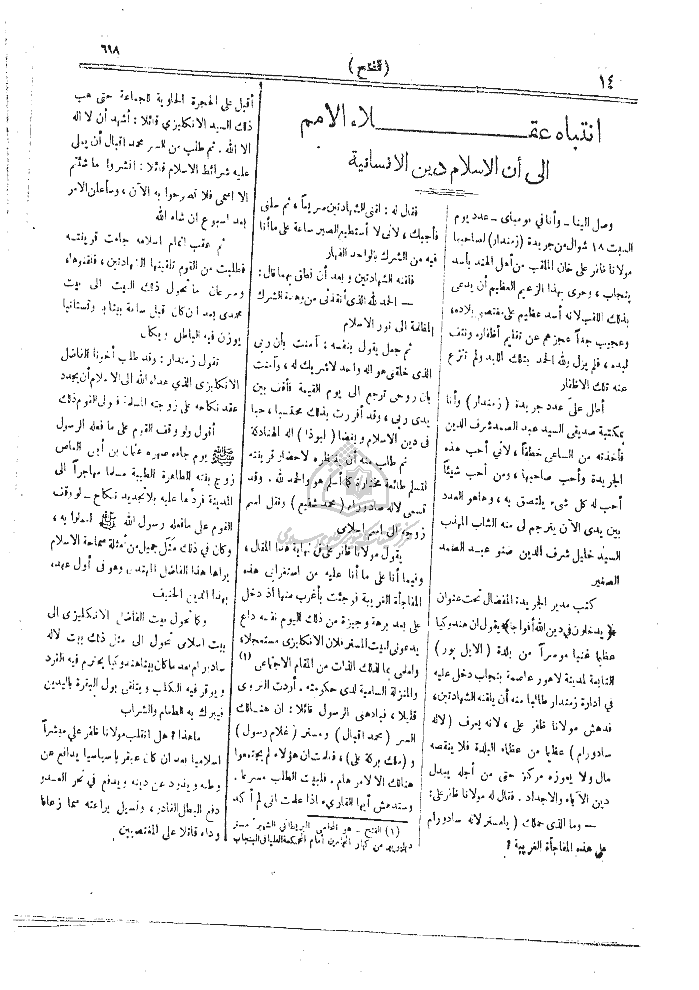 ٦٩٨
(فتح)
١٤
انتباه عقلاء الأمم
الى أن الاسلام دين الانسانية
وصل الينا – وأنا في بومباى – عدد يوم
السبت ١٨ شوال من جريدة (زمندار) لصاحبها
مولانا ظافر على خان الملقب من أهل الهند بأسد
پنجاب ، وحرى بهذا الزعيم العظيم أن يدعى
بذلك اللقب لأنه أسد عظيم على مغتصبي بلاده ،
وعجيب جداً عجزهم عن تقليم أظفاره ونتف
لبده ، فلم يزل ولله الحمد بتلك اللبد ولم تنزع
عنه تلك الاظفار
أطل علىّ عدد جريدة (زمندار) وأنا
بمكتبة صديقى السيد عبد الصمد شرف الدين
فأخذته من الساعى خطفاً ، لأنى أحب هذه
الجريدة وأحب صاحبها ، ومن أحب شيئاً
أحب له كل شىء يلتصق به ، وهاهو العدد
بين يدى الآن يترجم لى منه الشاب المهذب
السيد خليل شرف الدين صنو عبد الصمد
الصغير
كتب مدير الجريدة المفضال تحت عنوان
﴿ يدخلون في دين الله أفواجا ﴾ يقول ان هندوكيا
عظيما غنيا موسراً من بلدة (لايل پور)
التابعة لمدينة لاهور عاصمة پنجاب دخل عليه
في ادارة زمندار طالبا منه أن يلقنه الشهادتين ،
فدهش مولانا ظافر على ، لانه يعرف (لاله
سادورام) عظيما من عظماء البلدة فلا ينقصه
مال ولا يعوزه مركز حتى من أجله يبدل
دين الآباء والاجداد . فقال له مولانا ظافر على :
– وما الذى حملك (يا مستر لاله سادورام
على هذه المفاجأة الغريبة ؟
فقال له : لقنى الشهادتين سريعاً ، ثم سلنى
فأجيبك ، لأنى لا أستطيع الصبر ساعة على ما أنا
فيه من الشرك بالواحد القهار
فلقنه الشهادتين وبعد أن نطق بهما قال :
– الحمد لله الذى أنقذنى من وهدة الشرك
المظلمة الى نور الاسلام
ثم جعل يقول بنفسه : آمنت بأن ربى
الذى خلقنى هو اله واحد لا شريك له ، وآمنت
بأن روحى ترجع الى يوم القيمة فأقف بين
يدى ربى ، وقد أقررت بذلك محتسبا ، حبا
في دين الاسلام وبغضا (ابوذا) اله الهنادكة
ثم طلب منه أن ينتظره لاحضار قرينته
فتسلم طائعة مختارة كما أسلم هو والحمد لله . وقد
تسمى لاله سادوراه (محمد شفيع) ونقل اسم
زوجه الى اسم اسلامى
يقول مولانا ظافر على في نهاية هذا المقال ،
وفيما أنا على ما أنا عليه من استغرابى هذه
المفاجأة الغريبة فوجئت بأغرب منها اذ دخل
على بعد برهة وجيزة من ذلك اليوم نفسه داع
يدعونى لبيت المستر فلان الانكليزى مستعجلا ،
واعلمى بما لذلك الذات من المقام الاجتماعى (١)
والمنزلة السامية لدى حكومته . أردت التروى
قليلا ، فبادهنى الرسول قائلا : ان هنالك
السر (محمد اقبال) ومستر (غلام رسول)
و (ملك بركة على) ، فعلمت ان هؤلاء لم يجتمعوا
هنالك الا لأمر هام . فلبيت الطلب مسرعا .
وستدهش أيها القارىء اذا علمت انى لم أكد
(١) الفتح – هو المحامى البريطانى الشهير مستر
من كبار المحامين أمام المحكمة العليا في البنجاب
أقبل على الحجرة الحاوية للجماعة حتى هب
ذلك السيد الانكليزى قائلا : أشهد أن لا اله
الا الله . ثم طلب من السر محمد اقبال أن يملى
عليه شرائط الاسلام قائلا : انشروا ما شئتم
الا اسمى فلا تصرحوا به الآن ، وسأعلن الامر
بعد اسبوع ان شاء الله
ثم عقب اتمام اسلامه جاءت قرينته
فطلبت من القوم تلقينها الشهادتين ، فلقنوها ،
وسرعان ما تحول ذلك البيت الى بيت
محمدى بعد ان كان قبل ساعة بيتا پروتستانيا
يوزن فيه الباطل ويكال
تقول زمندار : وقد طلب أخونا الفاضل
الانكليزى الذى هداه الله الى الاسلام أن يجدد
عقد نكاحه على زوجته المسلمة فولى القوم ذلك
أقول ولو وقف القوم على ما فعله الرسول
ﷺ يوم جاءه صهره عثمان بن أبى العاص
زوج بنته الطاهرة الطيبة مسلما مهاجراً الى
المدينة فردها عليه بلا تجديد نكاح – لو وقف
القوم على ما فعله رسول الله ﷺ لعملوا به ،
وكان في ذلك مثل جميل من أمثلة سماحة الاسلام
يراها هذا الفاضل المهتدى وهو فى أول عهده
بهذا الدين الحنيف
وكما تحول بيت الفاضل الانكليزى الى
بيت اسلامى تحول الى مثل ذلك بيت لاله
سادورام بعد ما كان بيتا هندوكيا يحترم فيه القرد
ويوقر فيه الكلب ويتلقى بول البقرة باليدين
فيبرك به الطعام والشراب
ماهذا ؟ هل انقلب مولانا ظافر على مبشراً
اسلاميا بعد ان كان عبقريا سياسيا يدافع عن
وطنه ويذود عن دينه ويدفع في نحر العدو
دفع البطل القادر ، وتسيل يراعته سما زعافا
وداء قاتلا على المغتصبين